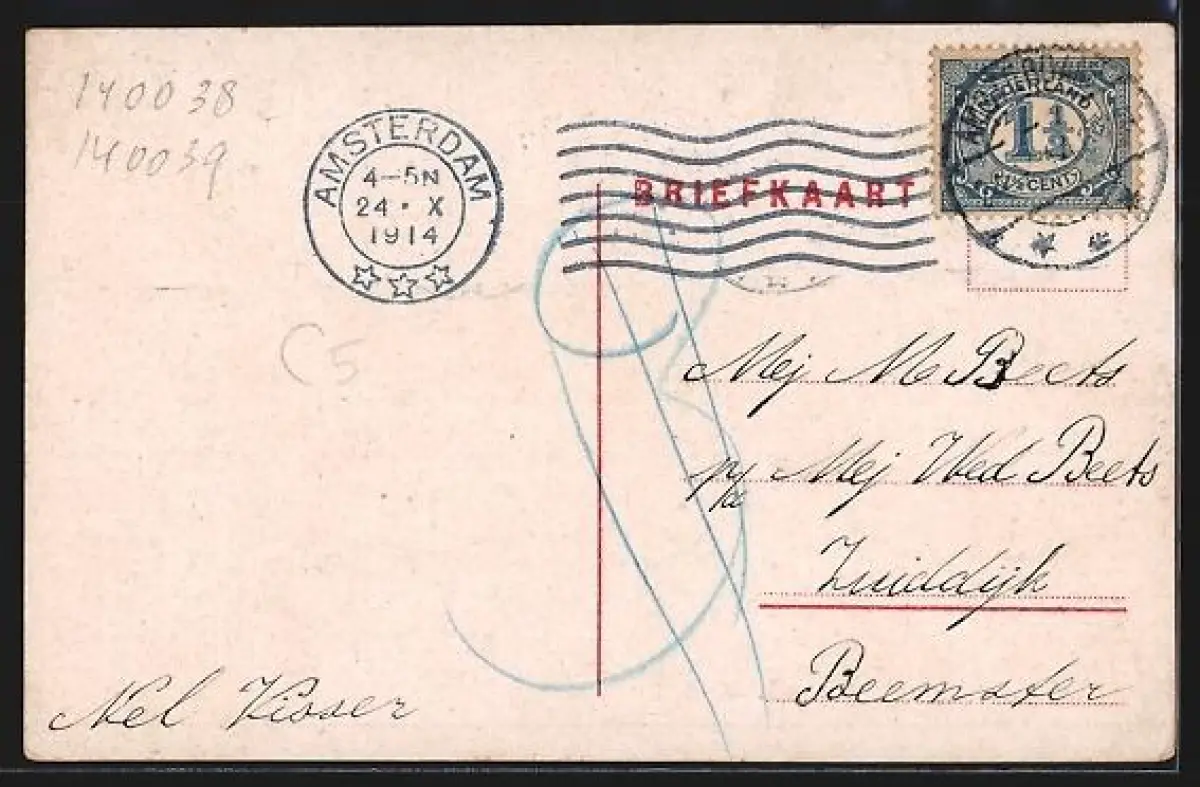 140038
140039
AMSTERDAM
4-5N
24 · X
1914
BRIEFKAART
NEDERLAND
1½
1½ CENT
C5
Mej M Beets
p/a Mej Wed Beets
Zuiddijk
Beemster
Nel Visser